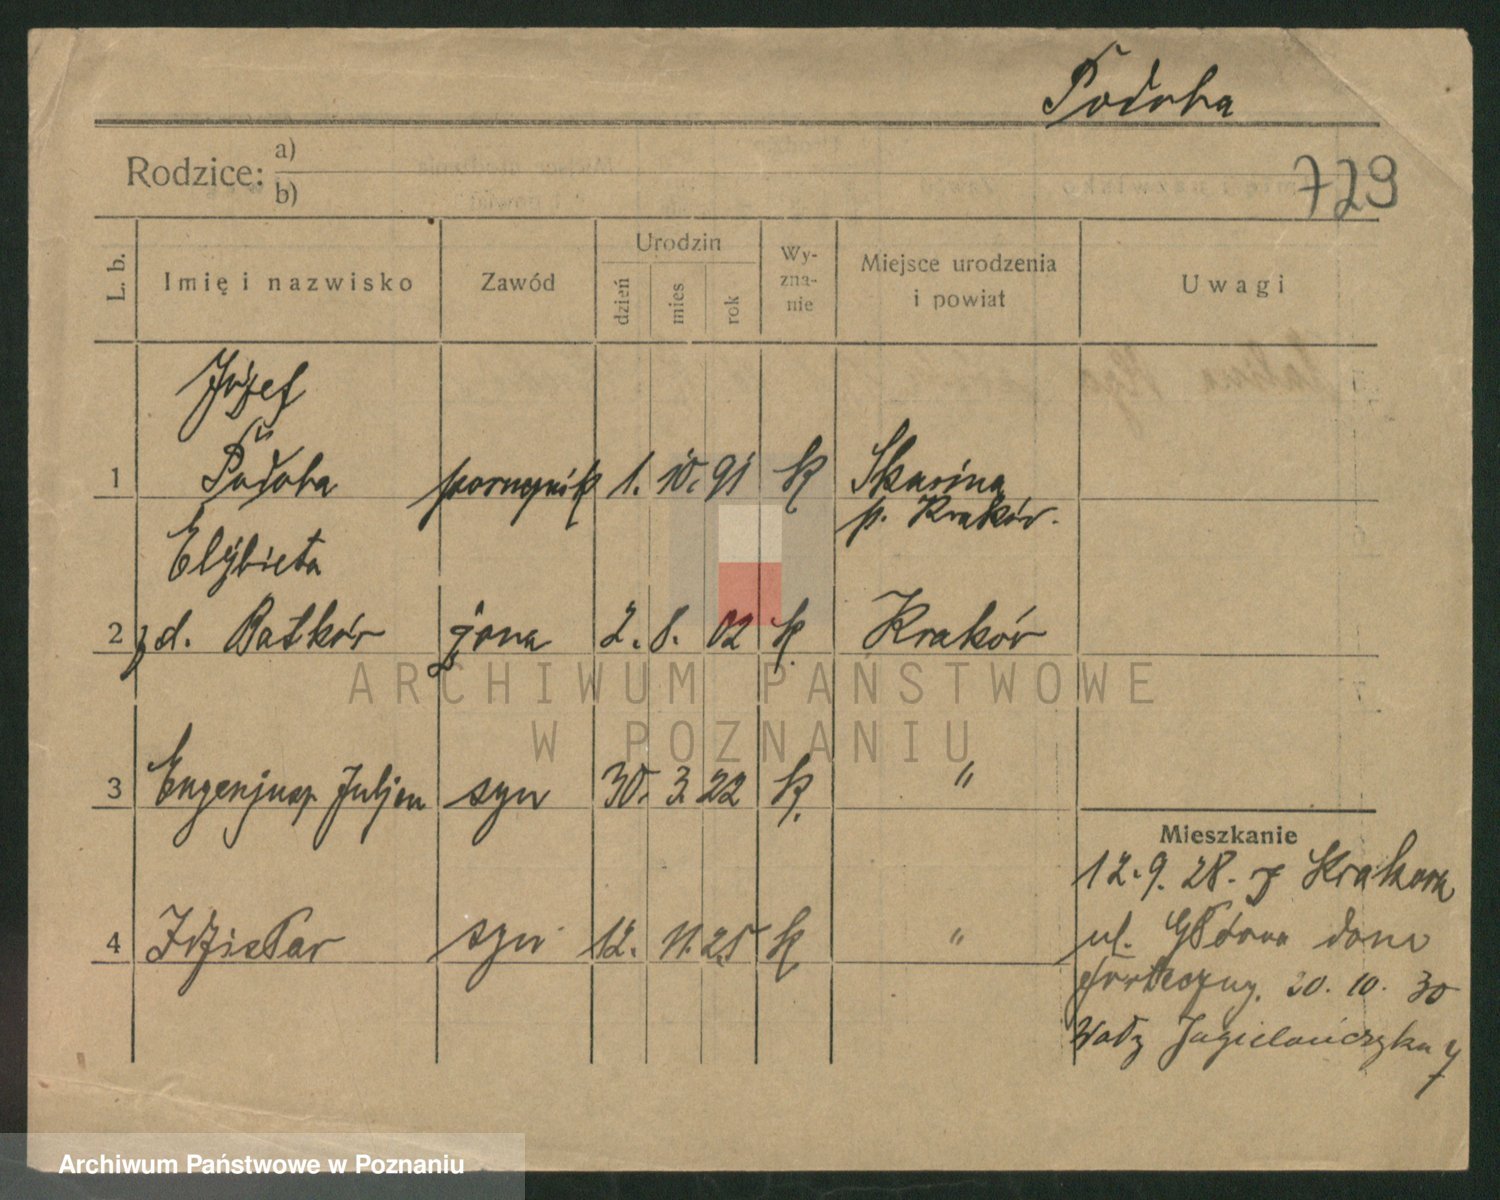 Podoba
Rodzice: a)
b)
729
L. b.
Imię i nazwisko
Zawód
Urodzin
dzień
mies
rok
Wy-
zna-
nie
Miejsce urodzenia
i powiat
Uwagi
Józef
1 Podoba 1. 10. 91 k Skawina
p. Kraków.
Elżbieta
2 z d. Batków żona 2. 8. 02 k. Kraków
3 Eugenjusz Juljan syn 30. 3. 22 k. "
4 Zdzisław syn 12. 11. 25 k "
Mieszkanie
12. 9. 28. z Krakowa
ul. Główna dom
forteczny. 20. 10. 30
Wały Jagielończyka
ARCHIWUM PAŃSTWOWE
W POZNANIU
Archiwum Państwowe w Poznaniu